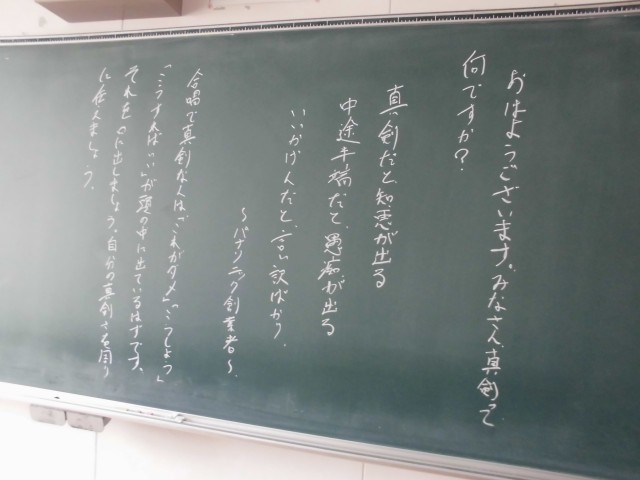 おはようございます。みなさん、真剣って
何ですか？
真剣だと知恵が出る
中途半端だと、愚痴が出る
いいかげんだと、言い訳ばかり。
〜パナソニック創業者〜
合唱で真剣な人は「これがダメ」「こうしよう」
「こうすればいい」が頭の中に出ているはずです。
それを口に出しましょう。自分の真剣さを周り
に伝えましょう。